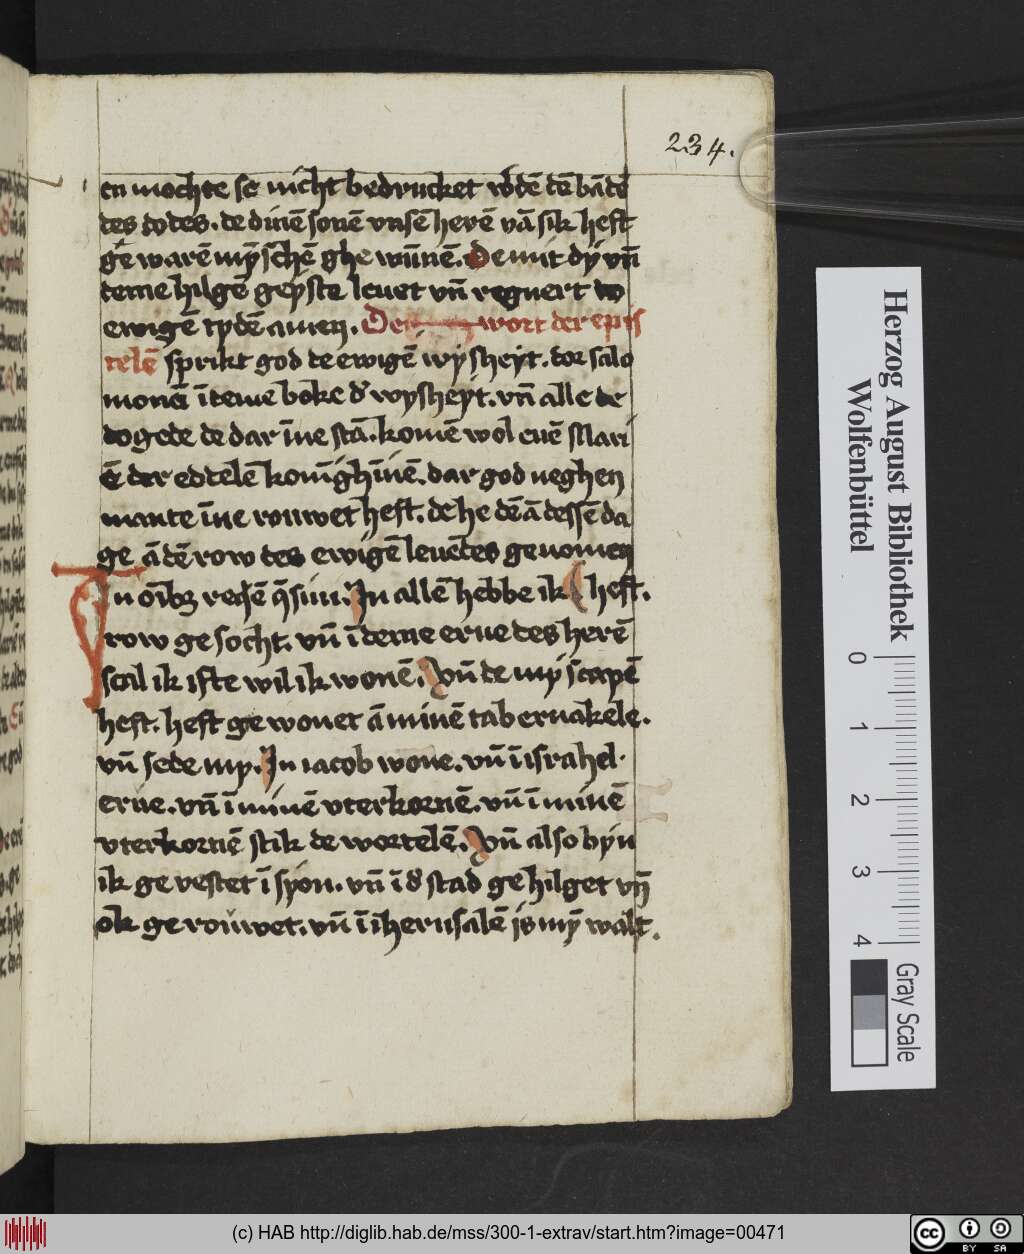 234.
en mochte se nicht bedrucket w̄dē dē bādē
des dodes. de dinē sonē vnsē herē vā sik heft
gē warē mȳschē ghe wūnē. De mit dy vn̄
deme hilgē geyste leuet vn̄ regnert to
ewigē tydē amen. De wort der epis
telē sprikt god de ewigē wysheyt. dor salo
monē ī deme boke d' wysheyt. vn̄ alle de
dogede de dar īne stā. komē wol euē Mari
ē der eddelē konīghīnē. dar god neghen
mante īne rouwet heft. de he dē ā dessē da
ge ā dē row des ewigē leuēdes genomen
In oībꝫ reqē q̄siui. In allē hebbe ik heft.
row ge socht. vn̄ ī deme erue des herē
scal ik ifte wil ik wonē. Vn̄ de my scapē
heft. heft ge wonet ā minē tabernakele.
vn̄ sede my. In iacob wone. vn̄ ī israhel.
erue. vn̄ ī minē vterkornē. vn̄ ī minē
vterkornē stik de wortelē. Vn̄ also byn
ik ge vestet ī syon. vn̄ ī d' stad ge hilget vn̄
ok ge rouwet. vn̄ ī iherusalē is mȳ walt.
Herzog August Bibliothek
Wolfenbüttel
0 1 2 3 4
Gray Scale
(c) HAB http://diglib.hab.de/mss/300-1-extrav/start.htm?image=00471
cc BY SA